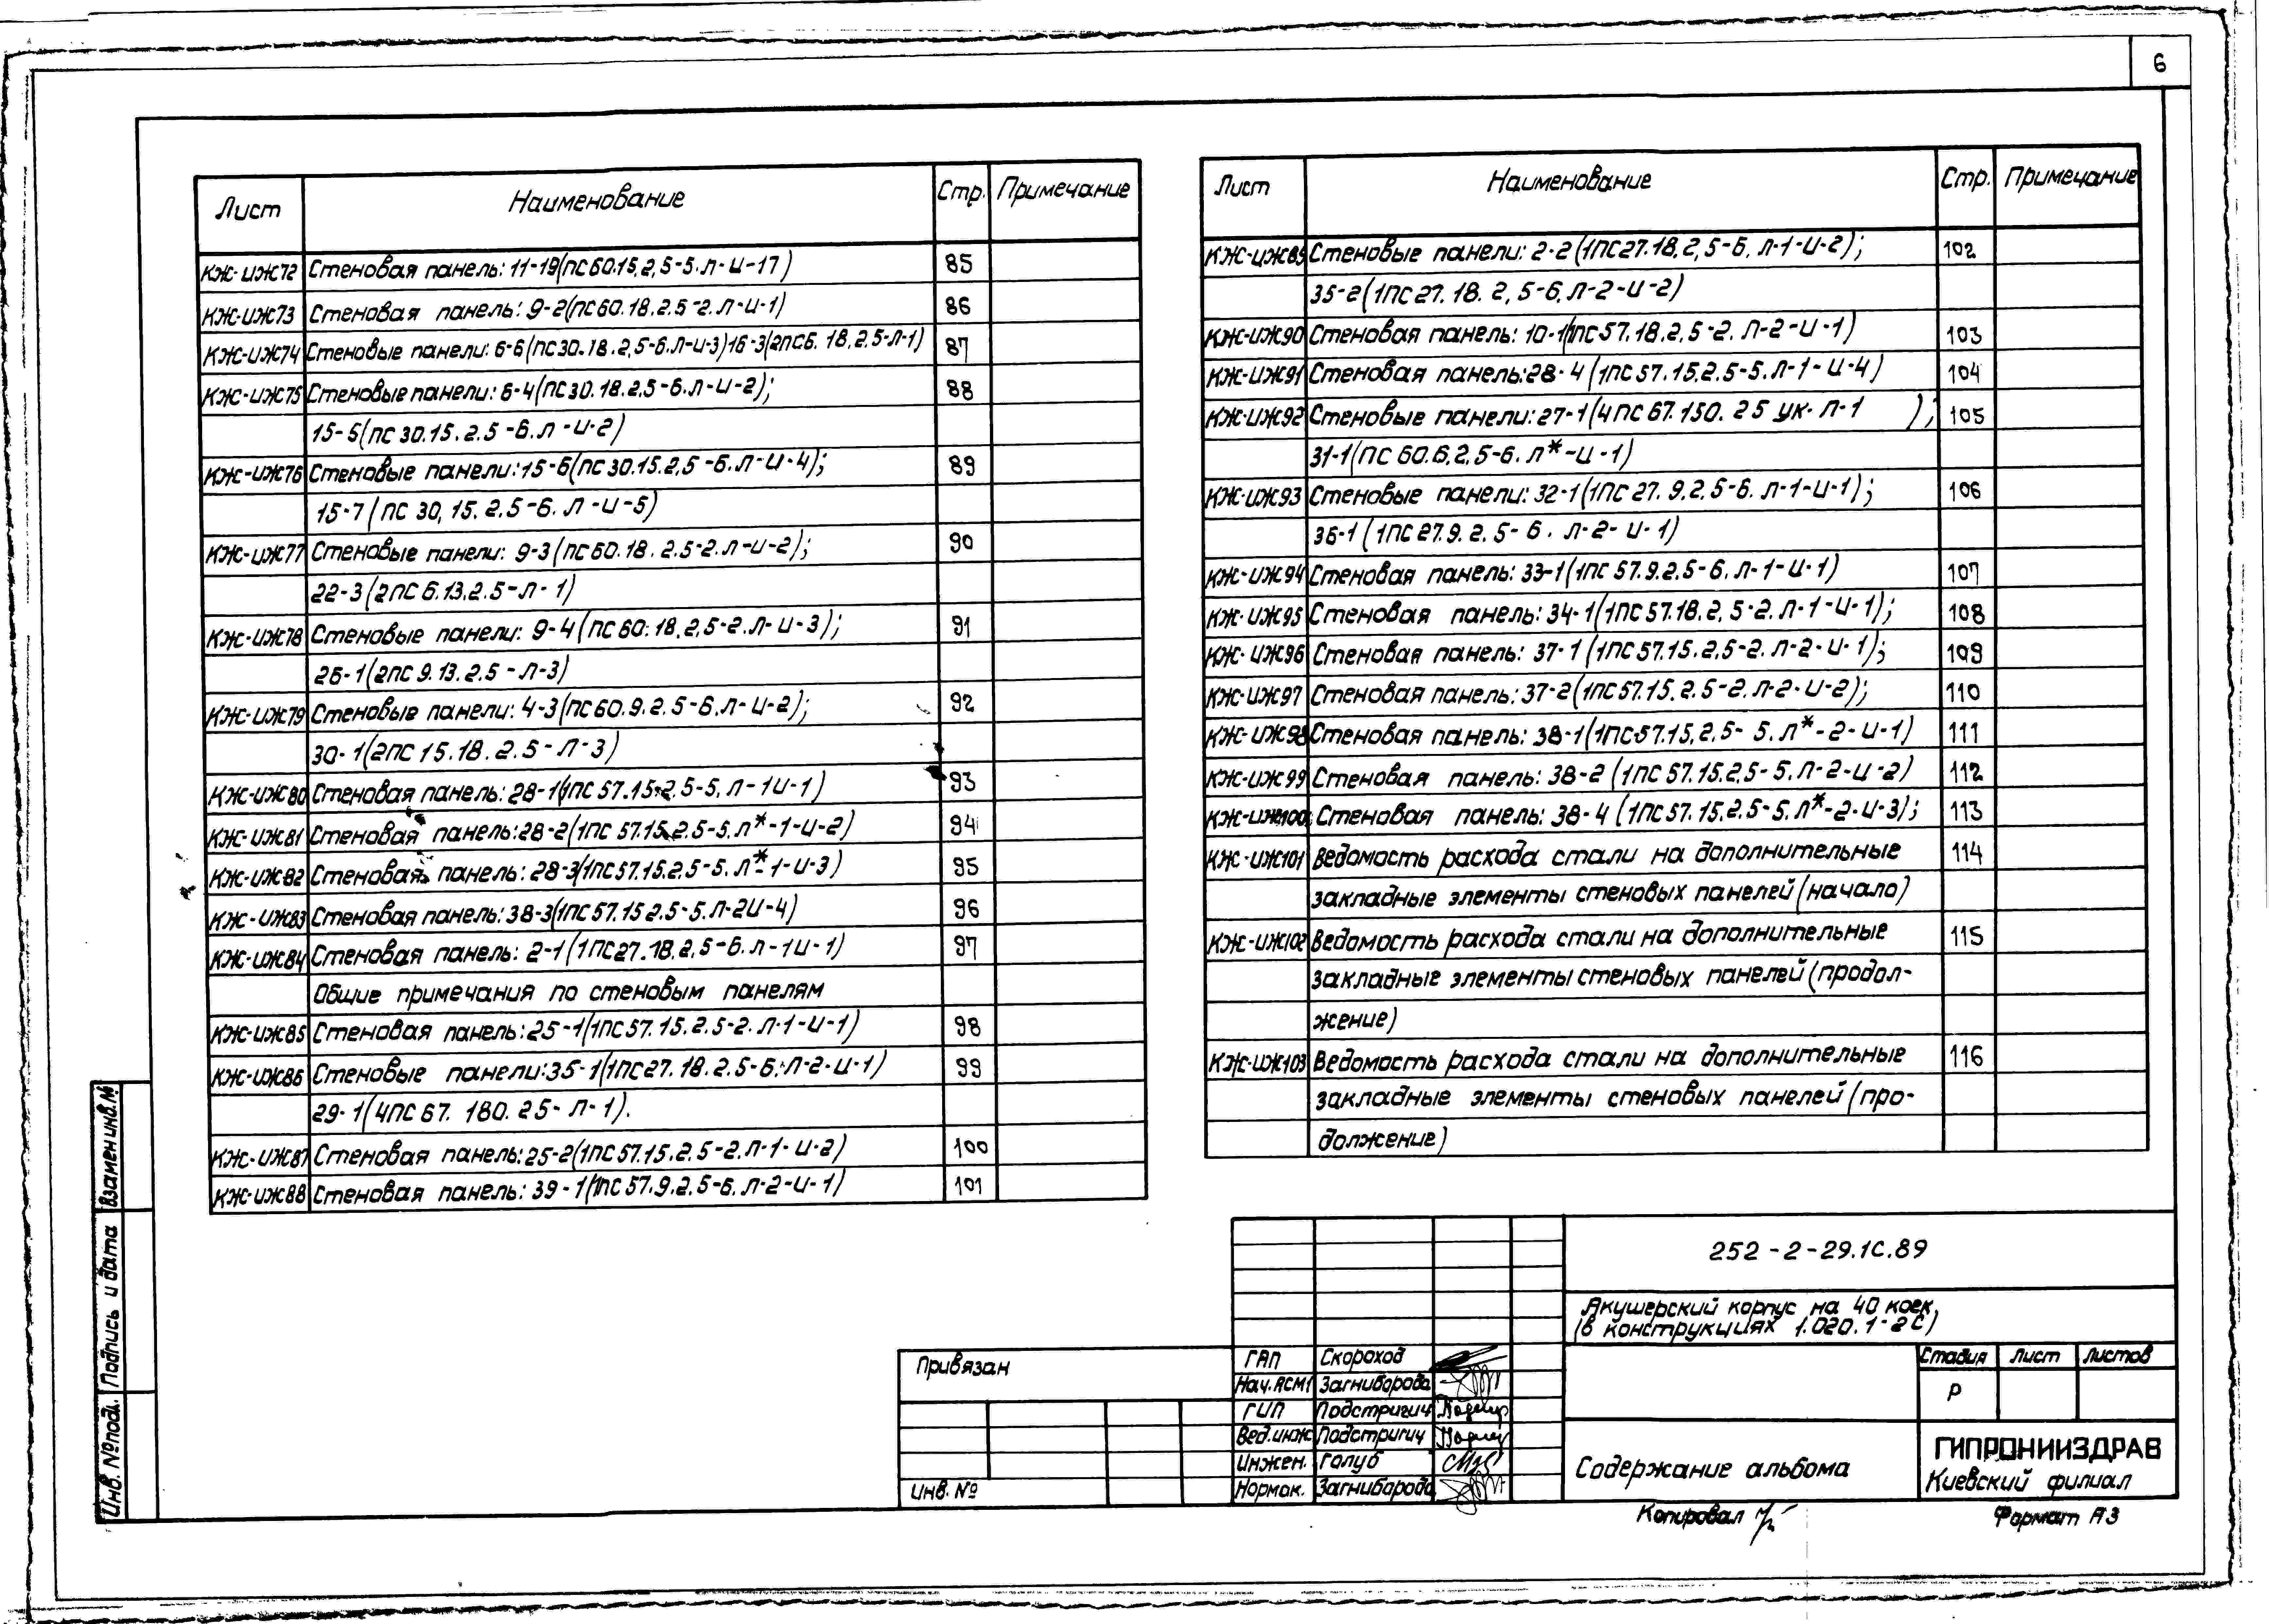 6
Лист Наименование Стр. Примечание
КЖ-ИЖ72 Стеновая панель: 11-19(ПС60.15.2,5-5.Л-И-17) 85
КЖ-ИЖ73 Стеновая панель: 9-2(ПС60.18.2.5-2.Л-И-1) 86
КЖ-ИЖ74 Стеновые панели: 6-6(ПС30.18.2,5-6.Л-И-3)16-3(2ПС6.18.2.5-Л-1) 87
КЖ-ИЖ75 Стеновые панели: 6-4(ПС30.18.2.5-6.Л-И-2); 88
15-5(ПС30.15.2.5-6.Л-И-2)
КЖ-ИЖ76 Стеновые панели: 15-6(ПС30.15.2,5-6.Л-И-4); 89
15-7(ПС 30,15.2.5-6.Л-И-5)
КЖ-ИЖ77 Стеновые панели: 9-3(ПС60.18.2.5-2.Л-И-2); 90
22-3(2ПС6.13.2.5-Л-1)
КЖ-ИЖ78 Стеновые панели: 9-4(ПС60.18.2,5-2.Л-И-3); 91
26-1(2ПС9.13.2.5-Л-3)
КЖ-ИЖ79 Стеновые панели: 4-3(ПС60.9.2.5-6.Л-И-2); 92
30-1(2ПС15.18.2.5-Л-3)
КЖ-ИЖ80 Стеновая панель: 28-1(1ПС57.15.2.5-5.Л-1И-1) 93
КЖ-ИЖ81 Стеновая панель: 28-2(1ПС57.15.2.5-5.Л*-1-И-2) 94
КЖ-ИЖ82 Стеновая панель: 28-3(1ПС57.15.2.5-5.Л*-1-И-3) 95
КЖ-ИЖ83 Стеновая панель: 38-3(1ПС57.15 2.5-5.Л-2И-4) 96
КЖ-ИЖ84 Стеновая панель: 2-1(1ПС27.18.2,5-6.Л-1И-1) 97
Общие примечания по стеновым панелям
КЖ-ИЖ85 Стеновая панель: 25-1(1ПС57.15.2.5-2.Л-1-И-1) 98
КЖ-ИЖ86 Стеновые панели: 35-1(1ПС27.18.2.5-6.Л-2-И-1) 99
29-1(4ПС67.180.25-Л-1).
КЖ-ИЖ87 Стеновая панель: 25-2(1ПС57.15.2,5-2.Л-1-И-2) 100
КЖ-ИЖ88 Стеновая панель: 39-1(1ПС57.9.2.5-6.Л-2-И-1) 101
Лист Наименование Стр. Примечание
КЖ-ИЖ89 Стеновые панели: 2-2(1ПС27.18.2,5-6.Л-1-И-2); 102
35-2(1ПС27.18.2,5-6.Л-2-И-2)
КЖ-ИЖ90 Стеновая панель: 10-1(1ПС57.18.2,5-2.Л-2-И-1) 103
КЖ-ИЖ91 Стеновая панель: 28-4(1ПС57.15.2.5-5.Л-1-И-4) 104
КЖ-ИЖ92 Стеновые панели: 27-1(4ПС67.150.25 ук-Л-1 ); 105
31-1(ПС60.6.2,5-6.Л*-И-1)
КЖ-ИЖ93 Стеновые панели: 32-1(1ПС27.9.2,5-6.Л-1-И-1); 106
36-1(1ПС27.9.2.5-6.Л-2-И-1)
КЖ-ИЖ94 Стеновая панель: 33-1(1ПС57.9.2.5-6.Л-1-И-1) 107
КЖ-ИЖ95 Стеновая панель: 34-1(1ПС57.18.2,5-2.Л-1-И-1); 108
КЖ-ИЖ96 Стеновая панель: 37-1(1ПС57.15.2,5-2.Л-2-И-1); 109
КЖ-ИЖ97 Стеновая панель: 37-2(1ПС57.15.2.5-2.Л-2-И-2); 110
КЖ-ИЖ98 Стеновая панель: 38-1(1ПС57.15.2,5-5.Л*-2-И-1) 111
КЖ-ИЖ99 Стеновая панель: 38-2(1ПС57.15.2.5-5.Л-2-И-2) 112
КЖ-ИЖ100 Стеновая панель: 38-4(1ПС57.15.2.5-5.Л*-2-И-3); 113
КЖ-ИЖ101 Ведомость расхода стали на дополнительные 114
закладные элементы стеновых панелей (начало)
КЖ-ИЖ102 Ведомость расхода стали на дополнительные 115
закладные элементы стеновых панелей (продол-
жение)
КЖ-ИЖ103 Ведомость расхода стали на дополнительные 116
закладные элементы стеновых панелей (про-
должение)
252-2-29.1С.89
Акушерский корпус на 40 коек,
(в конструкциях 1.020.1-2С)
Привязан
Инв. №
ГАП Скороход
Нач.АСМ1 Загниборода
ГИП Подстригич
Вед.инж Подстригич
Инжен. Голуб
Нормок. Загниборода
Стадия Лист Листов
Р
Содержание альбома
ГИПРОНИИЗДРАВ
Киевский филиал
Копировал
Формат А3
Взамен инв.№
Подпись и дата
Инв. №подл.